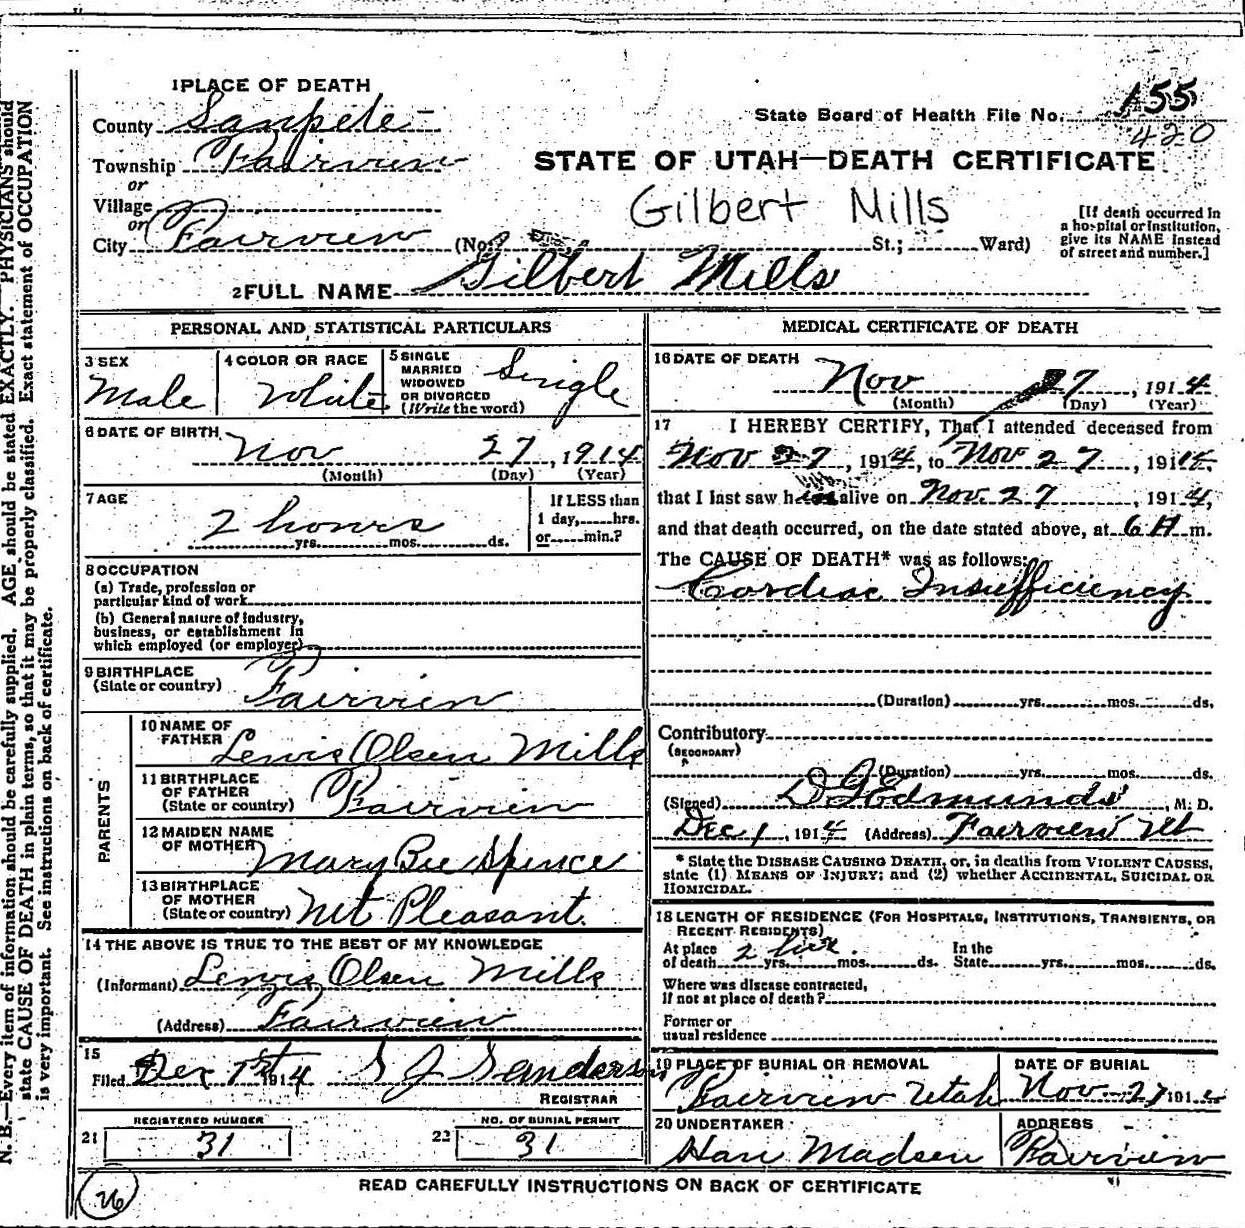 1 PLACE OF DEATH
County Sanpete
State Board of Health File No. 155
420
Township Fairview
STATE OF UTAH—DEATH CERTIFICATE
or
Village
Gilbert Mills
or
City Fairview (No. St.; Ward)
[If death occurred in a hospital or institution, give its NAME instead of street and number.]
2 FULL NAME Gilbert Mills
PERSONAL AND STATISTICAL PARTICULARS
3 SEX
Male
4 COLOR OR RACE
White
5 SINGLE
MARRIED
WIDOWED
OR DIVORCED
(Write the word)
Single
6 DATE OF BIRTH
Nov 27, 1914
(Month) (Day) (Year)
7 AGE
2 hours
yrs. mos. ds.
If LESS than
1 day, hrs.
or min.?
8 OCCUPATION
(a) Trade, profession or
particular kind of work
(b) General nature of industry,
business, or establishment in
which employed (or employer)
9 BIRTHPLACE
(State or country)
Fairview
PARENTS
10 NAME OF
FATHER
Lewis Olsen Mills
11 BIRTHPLACE
OF FATHER
(State or country)
Fairview
12 MAIDEN NAME
OF MOTHER
Mary Bee Spence
13 BIRTHPLACE
OF MOTHER
(State or country)
Mt Pleasant.
14 THE ABOVE IS TRUE TO THE BEST OF MY KNOWLEDGE
(Informant) Lewis Olsen Mills
(Address) Fairview
15
Filed Dec 1st 1914 S J Sanders
REGISTRAR
REGISTERED NUMBER
21 31
NO. OF BURIAL PERMIT
22 31
MEDICAL CERTIFICATE OF DEATH
16 DATE OF DEATH
Nov 27, 1914
(Month) (Day) (Year)
17 I HEREBY CERTIFY, That I attended deceased from
Nov 27, 1914, to Nov 27, 1914,
that I last saw h alive on Nov. 27, 1914,
and that death occurred, on the date stated above, at 6 A m.
The CAUSE OF DEATH* was as follows:
Cardiac Insufficiency
(Duration) yrs. mos. ds.
Contributory
(SECONDARY)
(Duration) yrs. mos. ds.
(Signed) D G Edmunds, M. D.
Dec 1, 1914 (Address) Fairview Ut
* State the DISEASE CAUSING DEATH, or, in deaths from VIOLENT CAUSES,
state (1) MEANS OF INJURY; and (2) whether ACCIDENTAL, SUICIDAL OR
HOMICIDAL.
18 LENGTH OF RESIDENCE (FOR HOSPITALS, INSTITUTIONS, TRANSIENTS, OR
RECENT RESIDENTS)
At place In the
of death 2 yrs. mos. ds. State yrs. mos. ds.
Where was disease contracted,
if not at place of death?
Former or
usual residence
19 PLACE OF BURIAL OR REMOVAL
Fairview Utah
DATE OF BURIAL
Nov 27 191
20 UNDERTAKER
Han Madsen
ADDRESS
Fairview
READ CAREFULLY INSTRUCTIONS ON BACK OF CERTIFICATE
26
N. B.—Every item of information should be carefully supplied. AGE should be stated EXACTLY. PHYSICIANS should
state CAUSE OF DEATH in plain terms, so that it may be properly classified. Exact statement of OCCUPATION
is very important. See instructions on back of certificate.